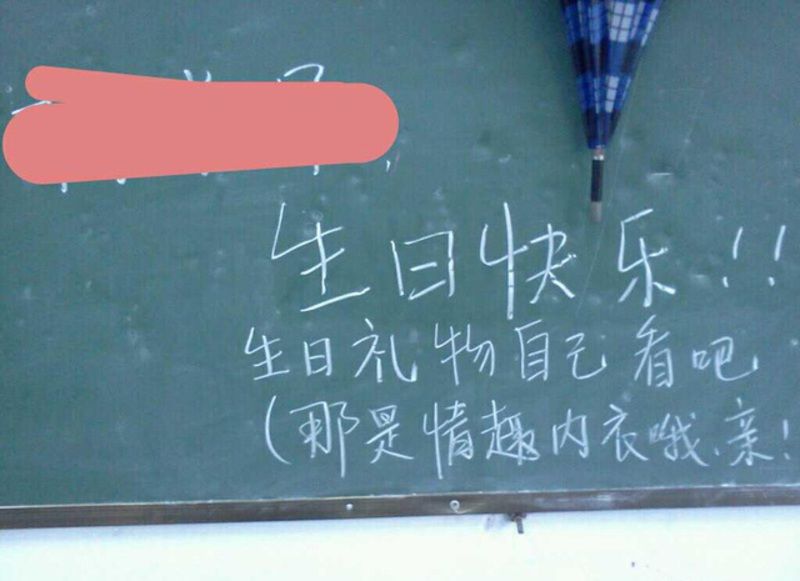 生日快乐!!
生日礼物自己看吧
(那是情趣内衣哦,亲!